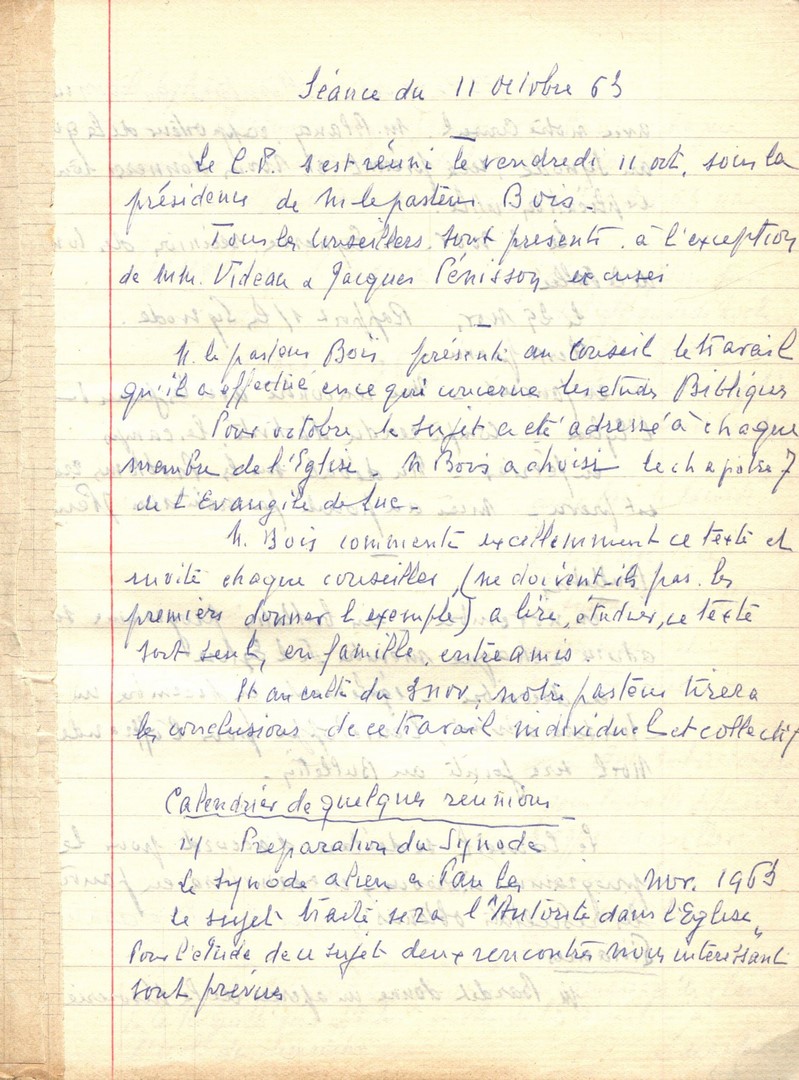 Séance du 11 octobre 63
Le C.P. s'est réuni le vendredi 11 oct. sous la
présidence de M le pasteur Bois.
Tous les conseillers sont présents à l'exception
de MM. Videau & Jacques Pénisson excusés
M. le pasteur Bois présente au Conseil le travail
qu'il a effectué en ce qui concerne les études Bibliques
Pour octobre le sujet a été adressé à chaque
membre de l'Eglise. M Bois a choisi le chapitre 7
de l'Evangile de Luc.
M. Bois commente excellemment ce texte et
invite chaque conseiller, (ne doivent-ils pas les
premiers donner l'exemple) a lire, étudier, ce texte
soit seul, en famille, entre amis.
Et au culte du 3 nov, notre pasteur tirera
les conclusions de ce travail individuel et collectif
Calendrier de quelques reunions
1/ Preparation du Synode
Le Synode a lieu a Pau les Nov. 1963
le sujet traité sera l'"Autorité dans l'Eglise"
Pour l'étude de ce sujet deux rencontres nous intéressant
sont prévues